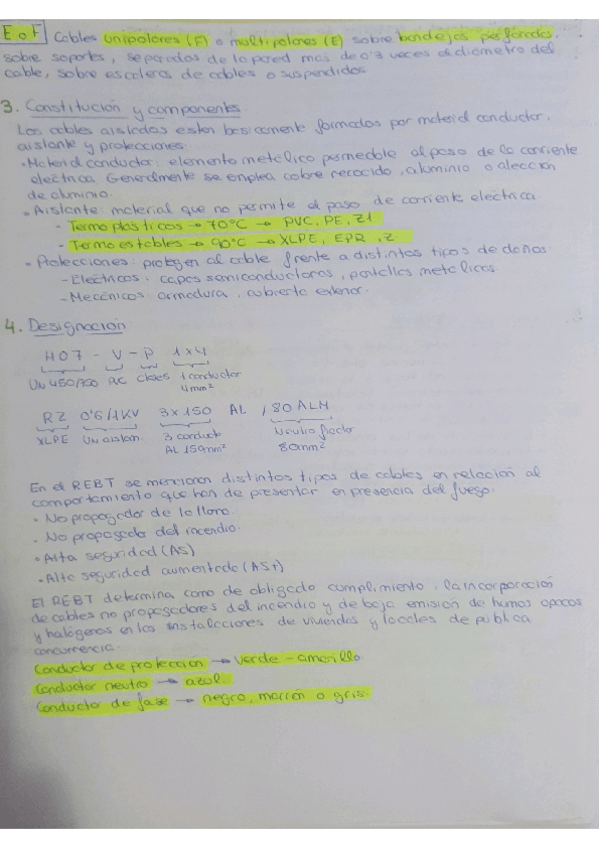 E o F Cables unipolares (F) o multipolares (E) sobre bandejas perforadas,
sobre soportes, separados de la pared mas de 0'3 veces el diámetro del
cable, sobre escaleras de cables o suspendidos
3. Constitución y componentes
Los cables aislados estan basicamente formados por material conductor,
aislante y protecciones.
• Material conductor: elemento metálico permeable al paso de la corriente
electrica. Generalmente se emplea cobre recocido, aluminio o aleación
de aluminio.
• Aislante: material que no permite el paso de corriente electrica
- Termo plásticos → 70°C → PVC, PE, Z1
- Termo estables → 90°C → XLPE, EPR, Z
• Protecciones: protegen al cable frente a distintos tipos de daños
- Eléctricos: capas semiconductoras, pantallas metálicas.
- Mecánicos: armadura, cubierta exterior.
4. Designación
H07 - V - P 1x4
Un 450/750 PVC 1 conductor
4mm²
RZ 0'6/1KV 3x150 AL /80 ALM
XLPE Un aislam. 3 conduct Neutro fiador
AL 150mm² 80mm²
En el REBT se mencionan distintos tipos de cables en relación al
comportamiento que han de presentar en presencia del fuego.
• No propagador de la llama.
• No propagador del incendio.
• Alta seguridad (AS)
• Alta seguridad aumentada (AS+)
El REBT determina como de obligado cumplimiento, la incorporación
de cables no propagadores del incendio y de baja emisión de humos opacos
y halógenos en las instalaciones de viviendas y locales de publica
concurrencia.
Conductor de protección → verde - amarillo
Conductor neutro → azul.
Conductor de fase → negro, marrón o gris.